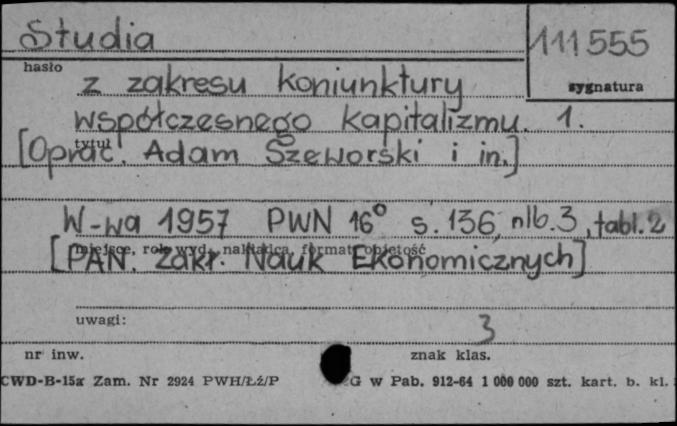 Studia
111555
hasło
sygnatura
z zakresu koniunktury
współczesnego kapitalizmu. 1.
tytuł
[Oprac. Adam Szeworski i in.]
W-wa 1957 PWN 16° s. 136, nlb. 3, tabl. 2
miejsce, rok wyd., nakładca, format, objętość
[PAN. Zakł. Nauk Ekonomicznych]
uwagi:
3
nr inw.
znak klas.
CWD-B-15a Zam. Nr 2924 PWH/Łź/P G w Pab. 912-64 1 000 000 szt. kart. b. kl.